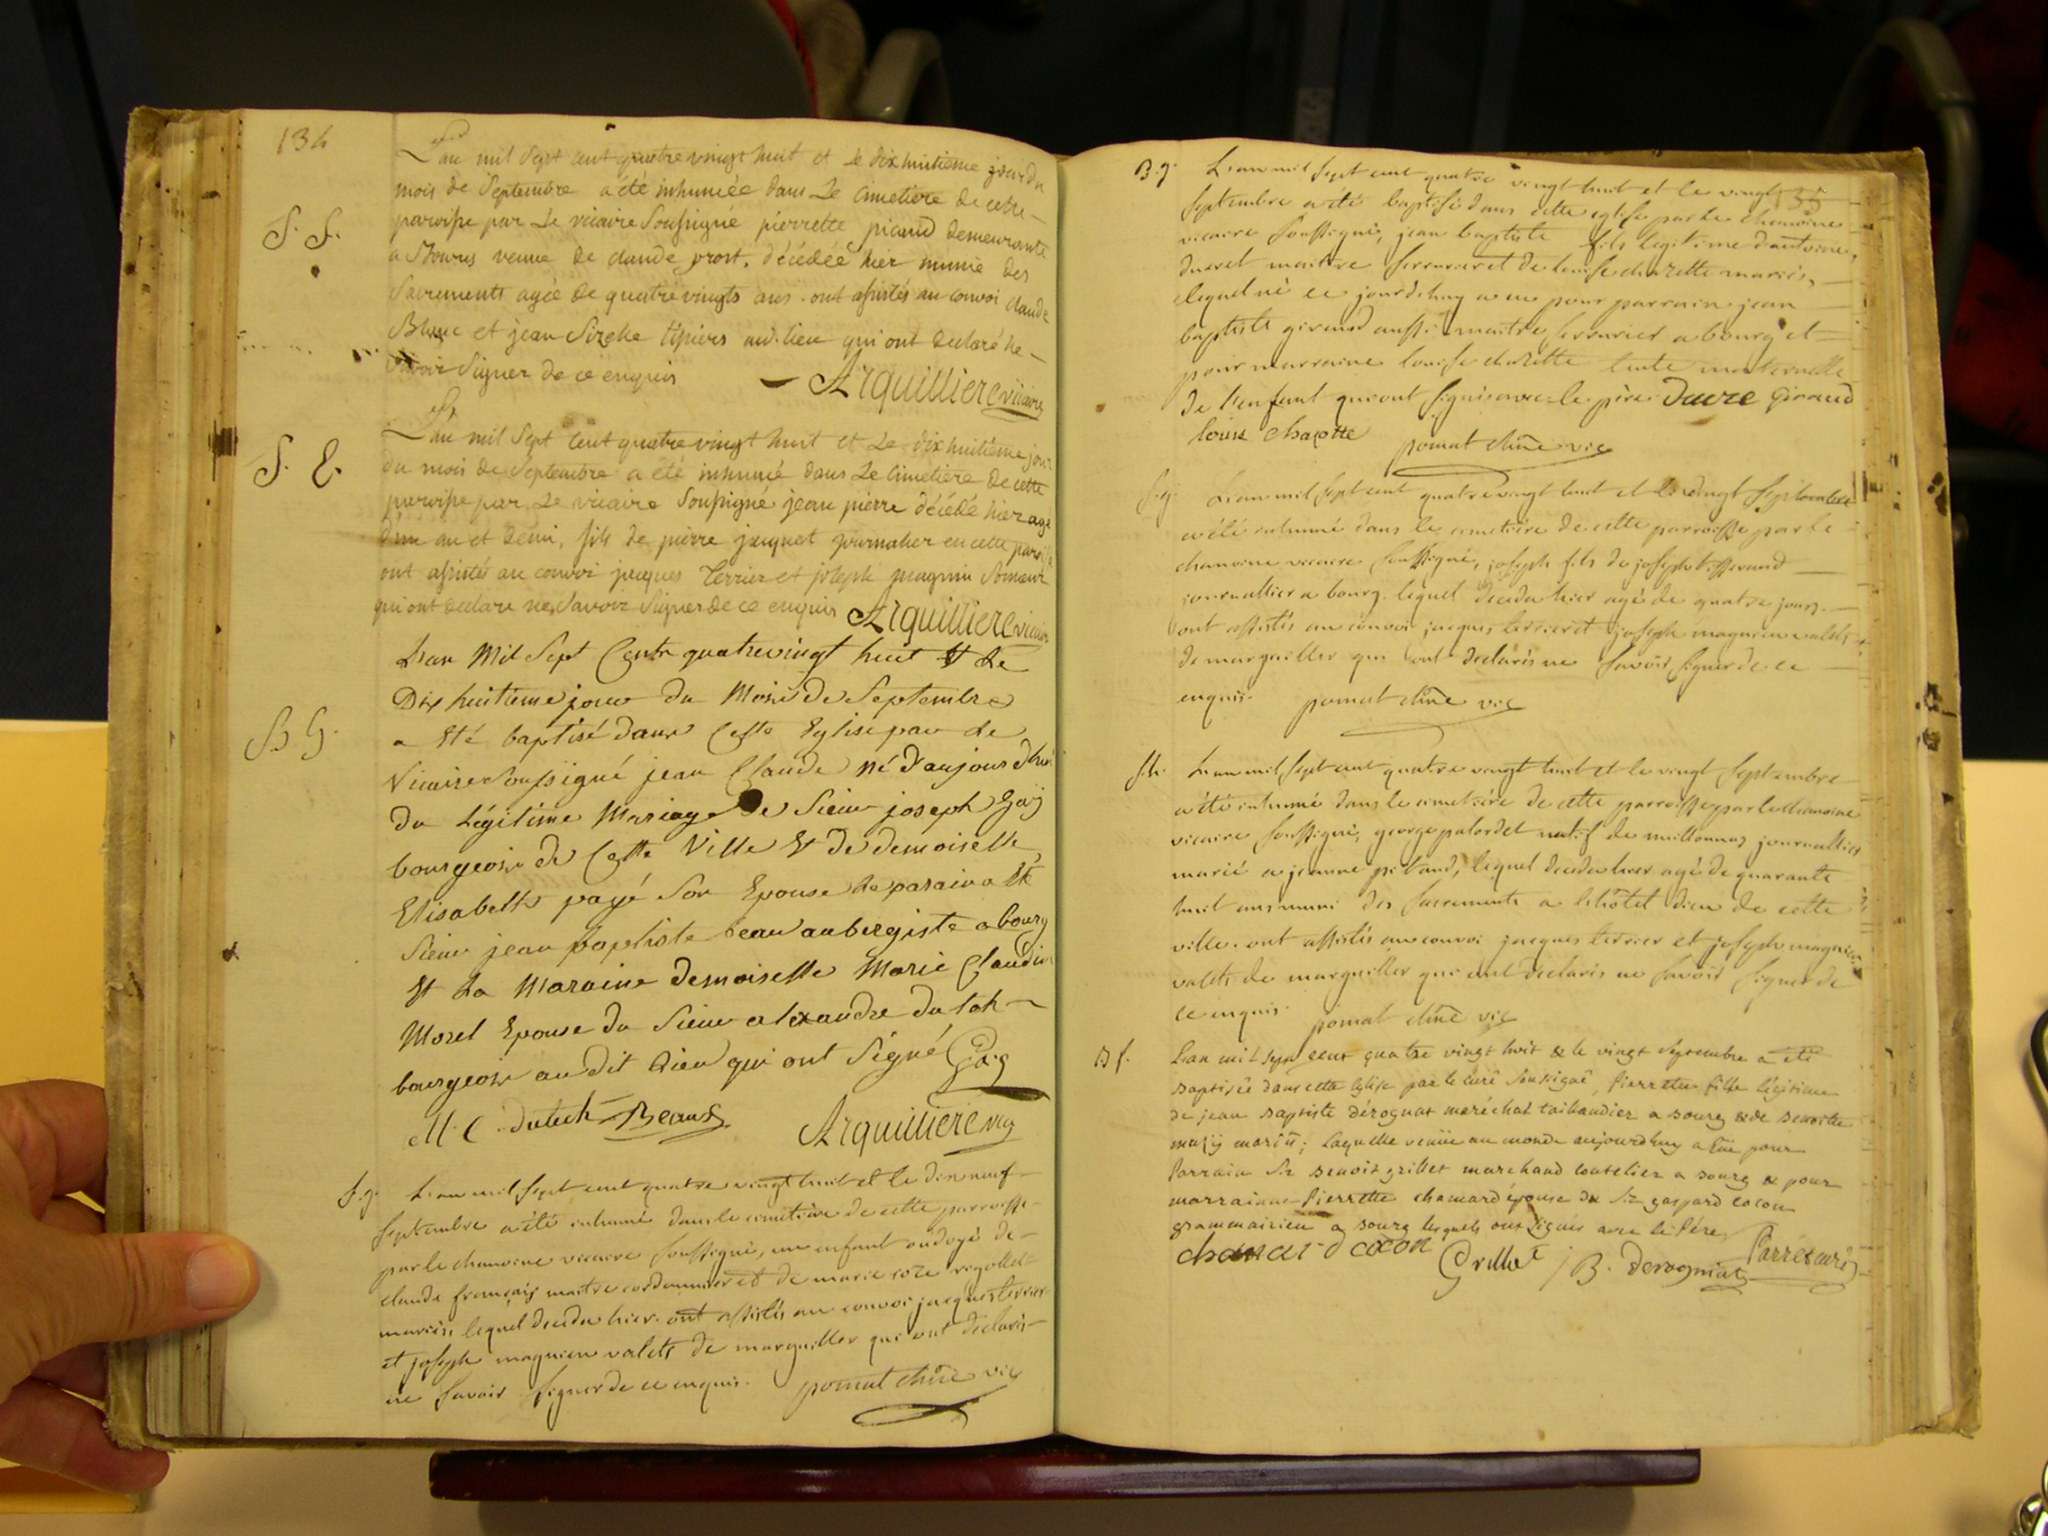 134
L'an mil sept cent quatre vingt huit et le dix huitieme jour du
mois de Septembre a été inhumée dans le cimetiere de cette
S. f. paroisse par le vicaire soussigné pierrette picaud demeurante
a Bourg veuve de claude prost, décédée hier munie des
sacrements agée de quatre vingts ans. ont assistés au convoi claude
Blanc et jean tipiers aud. lieu qui ont declaré ne
savoir signer de ce enquis Arquilliere vicaire
L'an mil sept cent quatre vingt huit et le dix huitieme jour
S. E. du mois de Septembre a été inhumé dans le cimetiere de cette
paroisse par le vicaire soussigné jean pierre décédé hier agé
d'un an et demi, fils de pierre jacquet journalier en cette paroisse
ont assistés au convoi jacques terrier et joseph magnin
qui ont declaré ne savoir signer de ce enquis Arquilliere vicaire
L'an Mil Sept Cent quatrevingt huit Et Le
Dix huitieme jour du Mois de Septembre
a Eté baptisé dans Cette Eglise par Le
B G. Vicaire Soussigné jean Claude né d'aujourd'hui
du Légitime Mariage de Sieur joseph Gaÿ
bourgeois de Cette Ville Et de demoiselle
Elisabeth payé Son Epouse Le parain a Eté
Sieur jean baptiste beau aubergiste a bourg
Et La Maraine demoiselle Marie Claudine
Morel Epouse du Sieur alexandre dutech
bourgeois au dit Lieu qui ont Signé Gaÿ
M. C. dutech Beau Arquilliere vic
f. g. L'an mil sept cent quatre vingt huit et le dix neuf
septembre a été inhumé dans le cimetiere de cette parroisse
par le chanoine vicaire soussigné, un enfant ondoyé de
claude françois maitre cordonnier et de marie rose rigollet
mariés, lequel deceda hier. ont assistés au convoi jacques terrier
et joseph magnien valets de marguiller qui ont déclarés
ne savoir signer de ce enquis. pomat chne vic
135
B. g. L'an mil sept cent quatre vingt huit et le vingt
septembre a été baptisé dans cette eglise par le chanoine
vicaire soussigné, jean baptiste fils legitime d'antoine
ducret maitre serrurier et de louise chazotte mariés,
lequel né ce jourd'huy a eu pour parrain jean
baptiste giraud aussi maitre serrurier a bourg et
pour marraine louise chazotte tante maternelle
de l'enfant qui ont signés avec le père. Ducre Giraud
louise chazotte pomat chne vic
f. g. L'an mil sept cent quatre vingt huit et le vingt septembre
a été inhumé dans le cimetiere de cette parroisse par le
chanoine vicaire soussigné, joseph fils de joseph tisserand
journallier a bourg. lequel deceda hier agé de quatre jours.
ont assistés au convoi jacques terrier et joseph magnien valets
de marguiller qui ont declarés ne savoir signer de ce
enquis. pomat chne vic
f. h. L'an mil sept cent quatre vingt huit et le vingt septembre
a été inhumé dans le cimetiere de cette parroisse par le chanoine
vicaire soussigné, george palordet natif de meillonnaz journallier
marié a jeanne pitaud, lequel deceda hier agé de quarante
huit ans muni des sacrements a l'hôtel dieu de cette
ville. ont assistés au convoi jacques terrier et joseph magnien
valets de marguiller qui ont declarés ne savoir signer de
ce enquis. pomat chne vic
B f. L'an mil sept cent quatre vingt huit & le vingt septembre a été
baptisée dans cette Eglise par le curé soussigné, Pierrette fille légitime
de jean baptiste Dérognat maréchal taillandier a bourg & de benoite
mariés; Laquelle venüe au monde aujourdhuy a eüe pour
Parrain Sr benoit grillet marchand coutelier a bourg & pour
marraine Pierrette chamard épouse de Sr gaspard cocon
grammairien a bourg lesquels ont signés avec le Père
chamard cocon Grillet J B. derognat Parrés curé